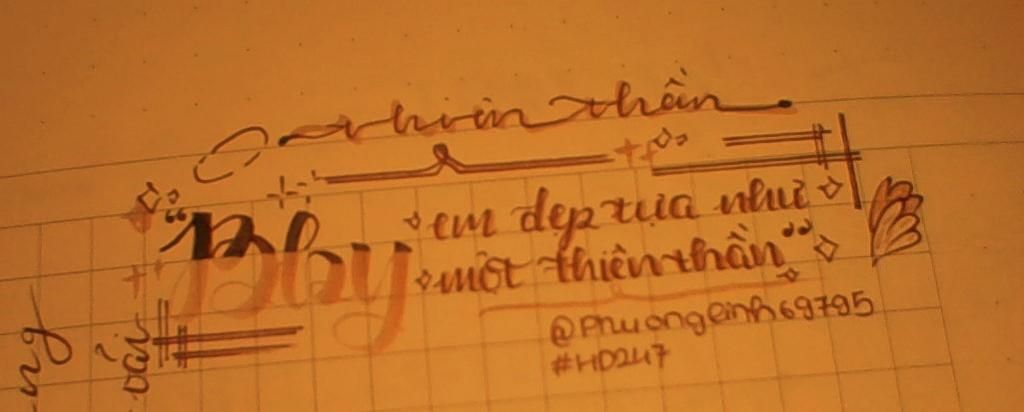 thiên thần
"Bby em đẹp tựa như
một thiên thần"
@Phuonglinh69795
#HD247